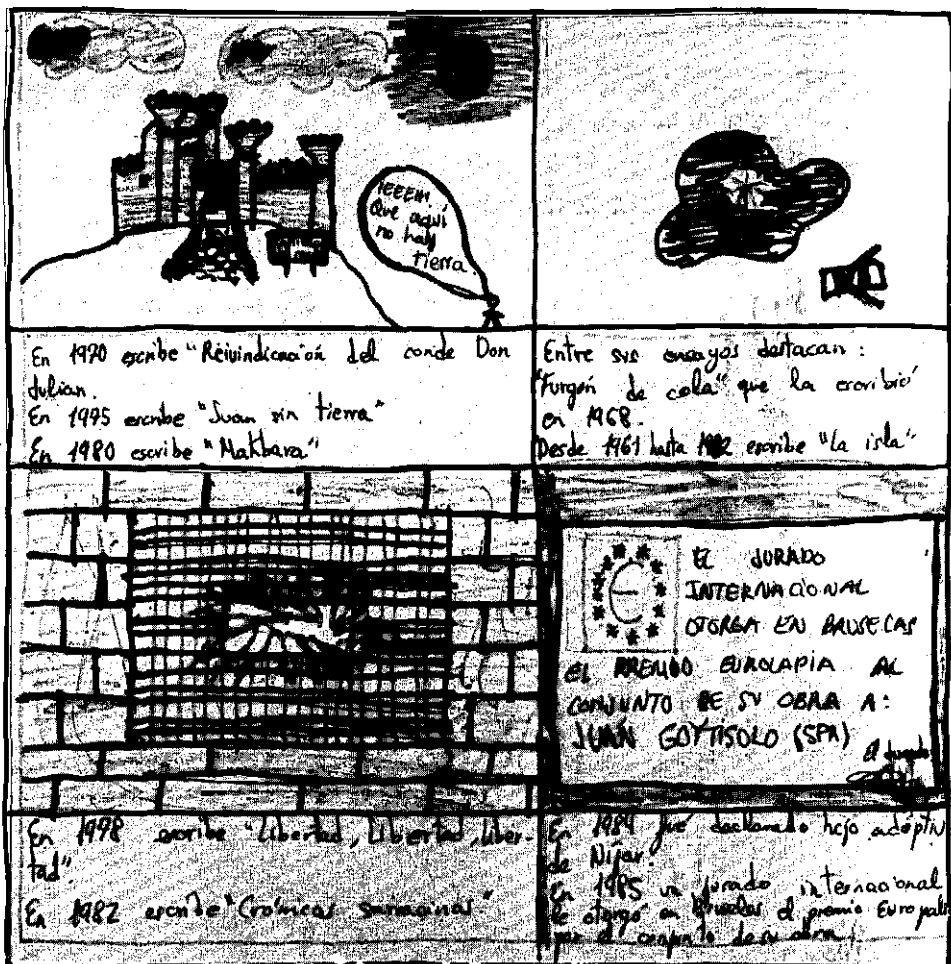 ¡EEEH!
Que aquí
no hay
tierra.
En 1970 escribe "Reivindicación del conde Don
Julian.
En 1975 escribe "Juan sin tierra"
En 1980 escribe "Makbara"
Entre sus ensayos destacan:
"Furgón de cola" que la escribió
en 1968.
Desde 1961 hasta escribe "La isla"
EL JURADO
INTERNACIONAL
OTORGA EN BRUSELAS
EL PREMIO EUROLAPIA AL
CONJUNTO DE SU OBRA A:
JUAN GOYTISOLO (SPA)
El jurado
En 1978 escribe "Libertad, Libertad, Liber-
tad".
En 1982 escribe "Crónicas sarracinas"
En 1984 fué declarado hijo adoptivo
de Níjar.
En 1985 un jurado internacional
le otorgó en Bruselas el premio Europalia
por el conjunto de su obra.